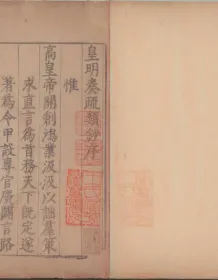 皇明奏疏類鈔序
惟
高皇帝開創鴻業汲汲以策
求直言為首務天下既定遂
著為令甲設專官廣闢言路